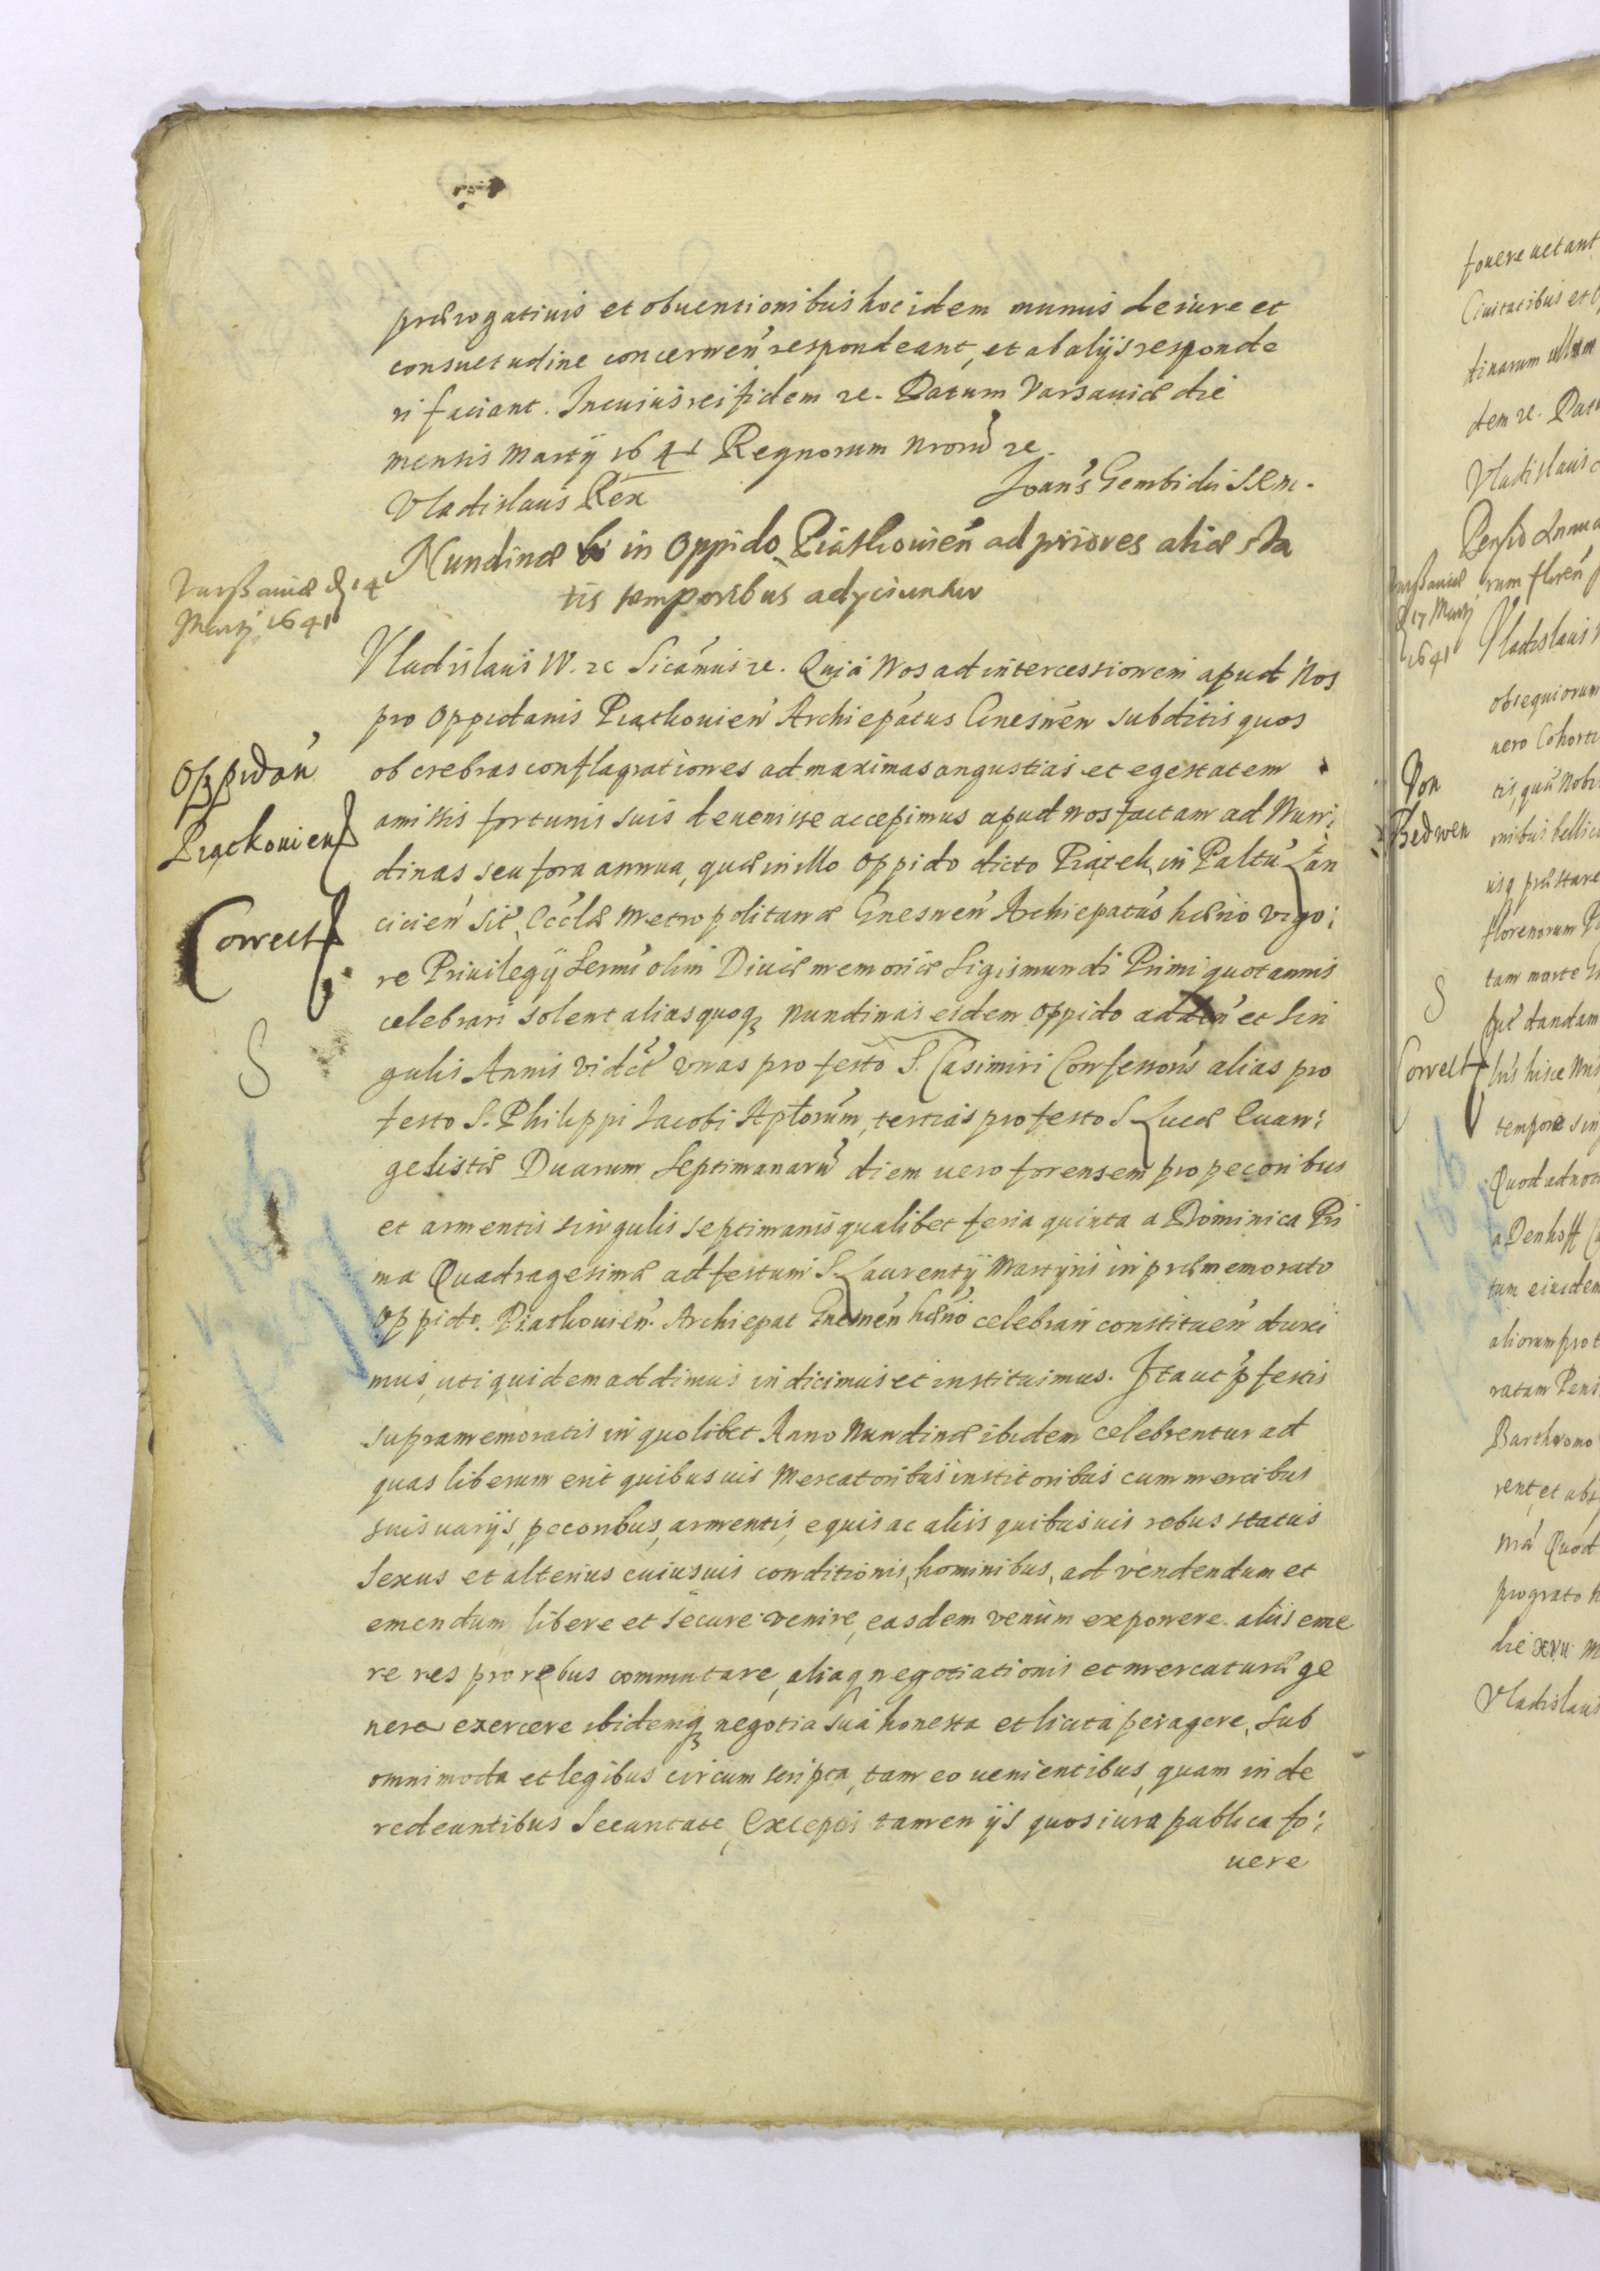 prærogatiuis et obuentionibus hoc idem munus de iure et
consuetudine concernen̄ respondeant, et ab alijs responde
ri faciant. In cuius rei fidem ꝛc. Datum Varsauiæ die
mensis Martij 1641 Regnorum nrorū ꝛc.
Vladislaus Rex
Joan̄s Gembicki
Nundinæ in Oppido Piątkouien̄ ad priores aliæ sta
tis temporibus adyciuntur
Varssauiæ d. 14
Martij 1641
Vladislaus IV. ꝛc Sīcamus ꝛc. Quia Nos ad intercessionem apud Nos
pro Oppidanis Piątkouien̄ Archiepātus Gnesnēn subditis quos
ob crebras conflagrationes ad maximas angustias et egestatem
amissis fortunis suis deuenisse accepimus apud nos factam ad Nun:
dinas seu fora annua, quæ in illo Oppido dicto Piątek in Paltū Lan
cicien̄ sitæ Ecclæ Metropolitanæ Gnesnen̄ Archiepatūs hærīo vigo:
re Priuilegij Sermī olim Diuæ memoriæ Sigismundi Primi quotannis
celebrari solent alias quoq; Nundinas eidem Oppido adden̄ et sin
gulis Annis vidēt vnas pro festo S. Casimiri Confessoris alias pro
festo S. Philippi Jacobi Aptorūm, tertias pro festo S Lucæ Euan:
gelistæ Duarum Septimanarū diem uero forensem pro pecoribus
et armentis singulis septimanis qualibet feria quinta a Dominica Pri
ma Quadragesimæ ad festum S. Laurentij Martyris in præmemorato
Oppido. Piątkouien̄. Archiepat Gnesnen̄ hærīo celebrari constituen̄ duxi
mus, uti quidem addimus indicimus et instituimus. Ita ut p̄ festis
supramemoratis in quolibet Anno Nundinæ ibidem celebrentur ad
quas liberum erit quibusuis Mercatoribus institoribus cum mercibus
suis uarijs, pecoribus, armentis, equis ac aliis quibusuis rebus status
sexus et alterius cuiusuis conditionis, hominibus, ad vendendum et
emendum, libere et secure venire, easdem venum exponere. aliis eme
re res pro rebus commutare, aliaq negotiationis et mercaturæ ge
nera exercere ibidemq; negotia sua honesta et licita peragere, sub
omnimoda et legibus circumscripta, tam eo uenientibus, quam inde
redeuntibus Securitate, Exceptis tamen ijs quos iura publica fo:
uere
Oppidan̄
Piątkouien
Correct
S
fouere uetant
Ciuitatibus et
dinarum ullum
dem ꝛc. Datu
Vladislaus
Pensio Annua
rum floren̄
17 Martij
1641
Vladislaus
obsequiorum
uero Cohorti
Don
Bedwen
nibus bellic
usq præstare
florenorum
tam morte
S
dandam
Correct
tempore sin
Quod ad no
a Denhoff
tum eiusdem
aliorum pro
ratam Pens
Barthromo
rent, et abs
Quod
pro grato
die xvii M
Vladislaus